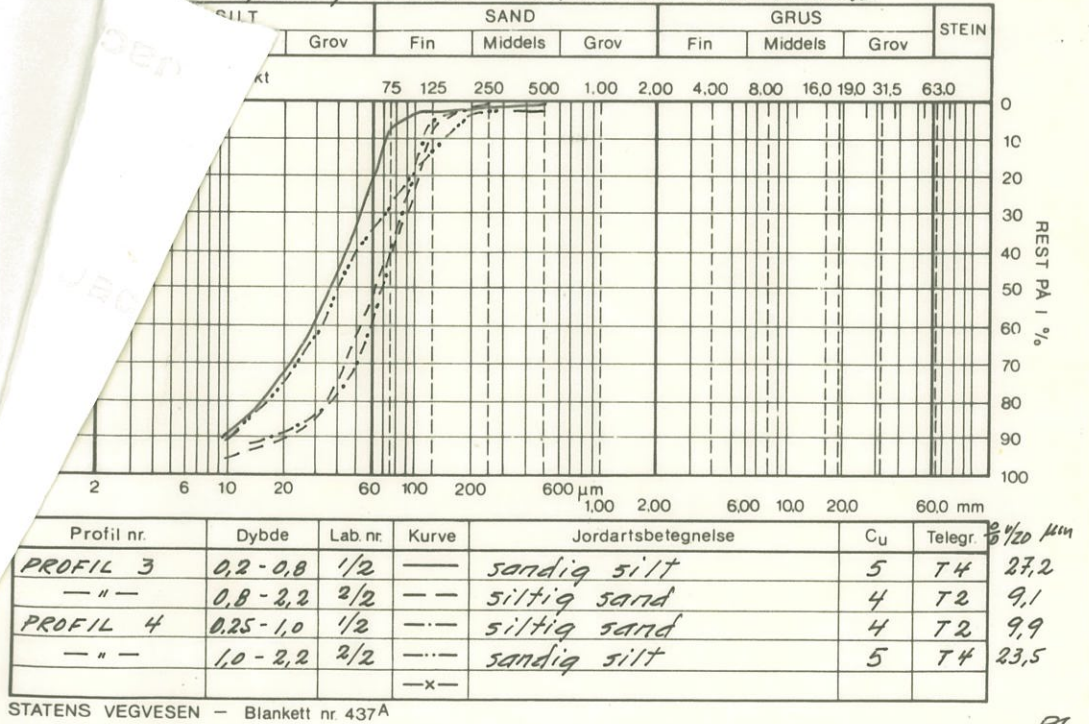 SILT SAND GRUS STEIN
Grov Fin Middels Grov Fin Middels Grov
kt 75 125 250 500 1,00 2,00 4,00 8,00 16,0 19,0 31,5 63,0
0
10
20
30
40
50
60
70
80
90
100
REST PÅ I %
2 6 10 20 60 100 200 600 µm
1,00 2,00 6,00 10,0 20,0 60,0 mm
Profil nr. Dybde Lab. nr. Kurve Jordartsbetegnelse Cu Telegr. % v/20 µm
PROFIL 3 0,2 - 0,8 1/2 sandig silt 5 T4 27,2
— " — 0,8 - 2,2 2/2 siltig sand 4 T2 9,1
PROFIL 4 0.25 - 1,0 1/2 siltig sand 4 T2 9,9
— " — 1,0 - 2,2 2/2 sandig silt 5 T4 23,5
—x—
STATENS VEGVESEN — Blankett nr. 437A